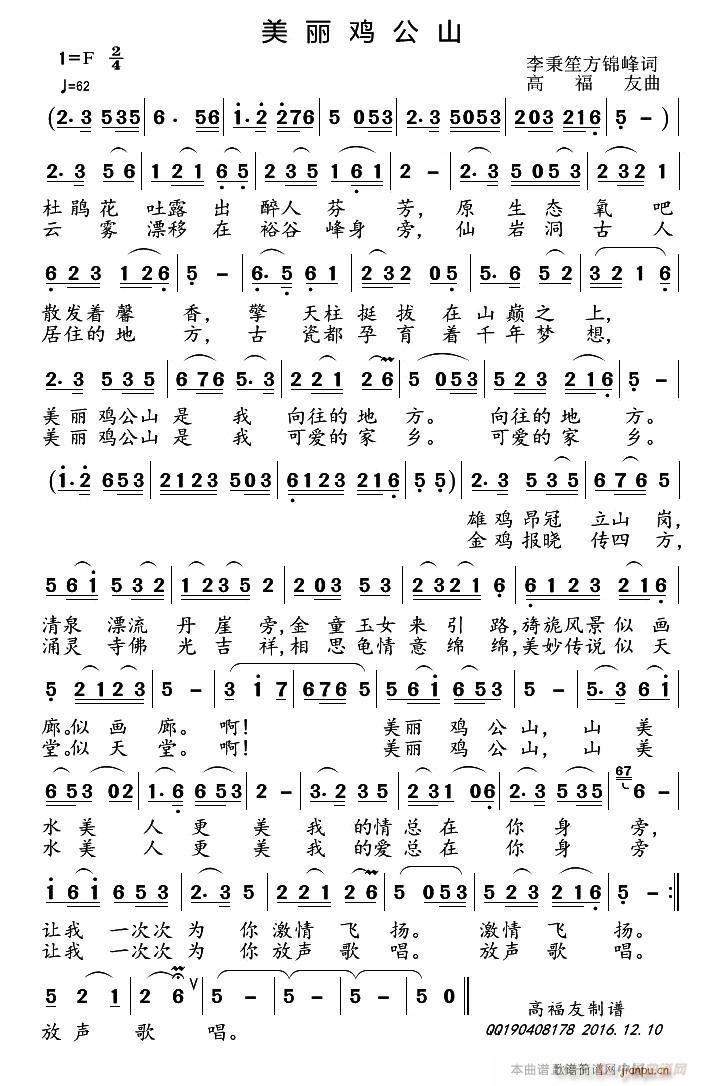 美丽鸡公山
1=F 2/4
♩=62
李秉笙方锦峰词
高福友曲
(2. 3 535 | 6. 56 | 1. 2 276 | 5 053 | 2. 3 5053 | 203 216 | 5 - )
2. 3 5 6 | 1 2 1 6 5 | 2 3 5 1 6 1 | 2 - | 2. 3 5 0 5 3 | 2 3 2 1
杜鹃花 吐露 出 醉人 芬 芳, 原 生 态 氧 吧
云 雾 漂移 在 裕谷 峰身 旁, 仙 岩 洞 古 人
6 2 3 1 2 6 | 5 - | 6. 5 6 1 | 2 3 2 0 5 | 5. 6 5 2 | 3 2 1 6
散发着馨 香, 擎 天柱 挺 拔 在 山 巅 之 上,
居住的地 方, 古 瓷都 孕 育 着 千 年 梦 想,
2. 3 5 3 5 | 6 7 6 5. 3 | 2 2 1 2 6 | 5 0 5 3 | 5 2 3 2 1 6 | 5 -
美 丽 鸡公山 是 我 向往的 地 方。 向往的 地 方。
美 丽 鸡公山 是 我 可爱的 家 乡。 可爱的 家 乡。
(1. 2 653 | 2123 503 | 6123 216 | 5 5) | 2. 3 5 3 5 | 6 7 6 5
雄 鸡 昂冠 立山 岗,
金 鸡 报晓 传四 方,
5 6 1 5 3 2 | 1 2 3 5 2 | 2 0 3 5 3 | 2 3 2 1 6 | 6 1 2 3 2 1 6
清泉 漂流 丹 崖 旁,金 童 玉女 来 引 路,旖旎风景 似 画
涌灵 寺佛 光 吉 祥,相 思 龟情 意 绵 绵,美妙传说 似 天
5 2 1 2 3 | 5 - | 3 1 7 | 6 7 6 5 | 5 6 1 6 5 3 | 5 - | 5. 3 6 1
廊。似 画 廊。 啊! 美丽 鸡 公 山, 山 美
堂。似 天 堂。 啊! 美丽 鸡 公 山, 山 美
6 5 3 0 2 | 1. 6 6 5 3 | 2 - | 3. 2 3 5 | 2 3 1 0 6 | 2. 3 5 3 5 | 67 6 -
水 美 人 更 美 我 的情 总 在 你 身 旁,
水 美 人 更 美 我 的爱 总 在 你 身 旁
1 6 1 6 5 3 | 2. 3 5 | 2 2 1 2 6 | 5 0 5 3 | 5 2 3 2 1 6 | 5 - :||
让我 一次次 为 你 激情 飞 扬。 激情 飞 扬。
让我 一次次 为 你 放声 歌 唱。 放声 歌 唱。
5 2 1 | 2 6 ∨ | 5 - | 5 - | 5 - | 5 0 ||
放 声 歌 唱。
高福友制谱
QQ190408178 2016.12.10
jianpu.cn